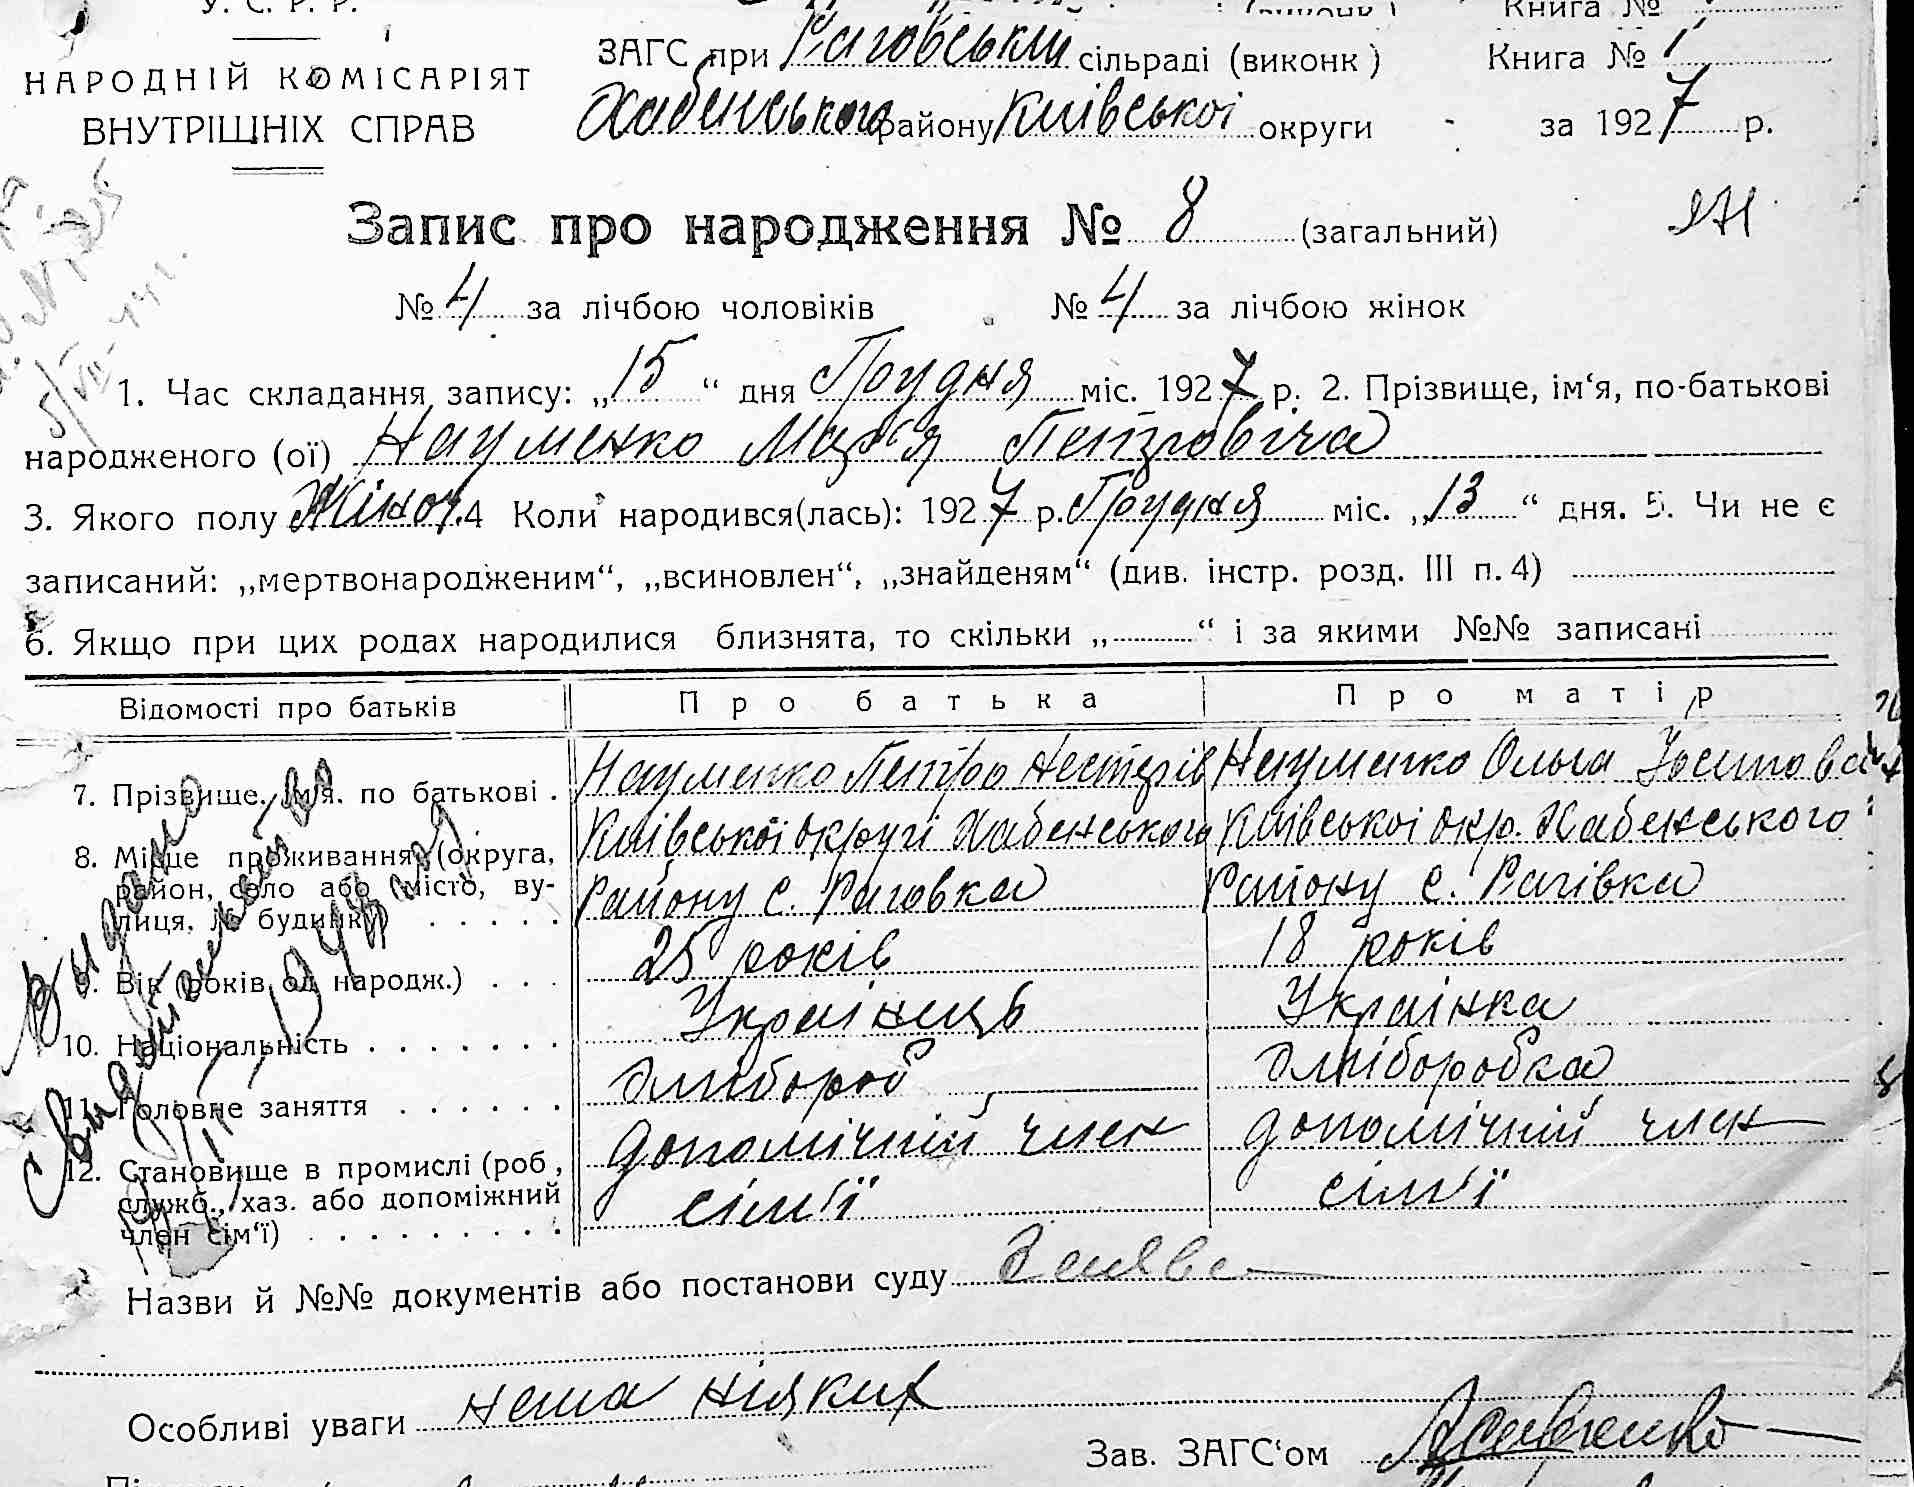 У. С. Р. Р.
НАРОДНІЙ КОМІСАРІЯТ
ВНУТРІШНІХ СПРАВ
Книга №
ЗАГС при Раговській сільраді (виконк ) Книга № 1
Хабенського району Київської округи за 1927 р.
Запис про народження № 8 (загальний)
171
№ 4 за лічбою чоловіків № 4 за лічбою жінок
1. Час складання запису: „15 “ дня Грудня міс. 1927 р. 2. Прізвище, ім‘я, по-батькові
народженого (ої) Науменко Марія Петровіча
3. Якого полу Жіноч. 4 Коли народився(лась): 1927 р. Грудня міс. „13 “ дня. 5. Чи не є
записаний: „мертвонародженим“, „всиновлен“, „знайденям“ (див. інстр. розд. III п. 4)
6. Якщо при цих родах народилися близнята, то скільки „ “ і за якими №№ записані
Відомості про батьків Про батька Про матір
7. Прізвище, ім‘я. по батькові . Науменко Петро Нестерів Науменко Ольга Йосипова
8. Місце проживання (округа, район, село або місто, вулиця, № будинку)
Київської округі Хабенського Київської окр. Хабенського
Району с. Раговка Району с. Рагівка
9. Вік (років од народж.) 25 років 18 років
10. Національність Українець Українка
11. Головне заняття Хлібороб Хліборобка
12. Становище в промислі (роб , служб., хаз. або допоміжний член сім‘ї)
допомічний член допомічний член
сім‘ї сім‘ї
Видано
Свидоцтво
Назви й №№ документів або постанови суду Заява
Особливі уваги нема ніяких
Зав. ЗАГС‘ом